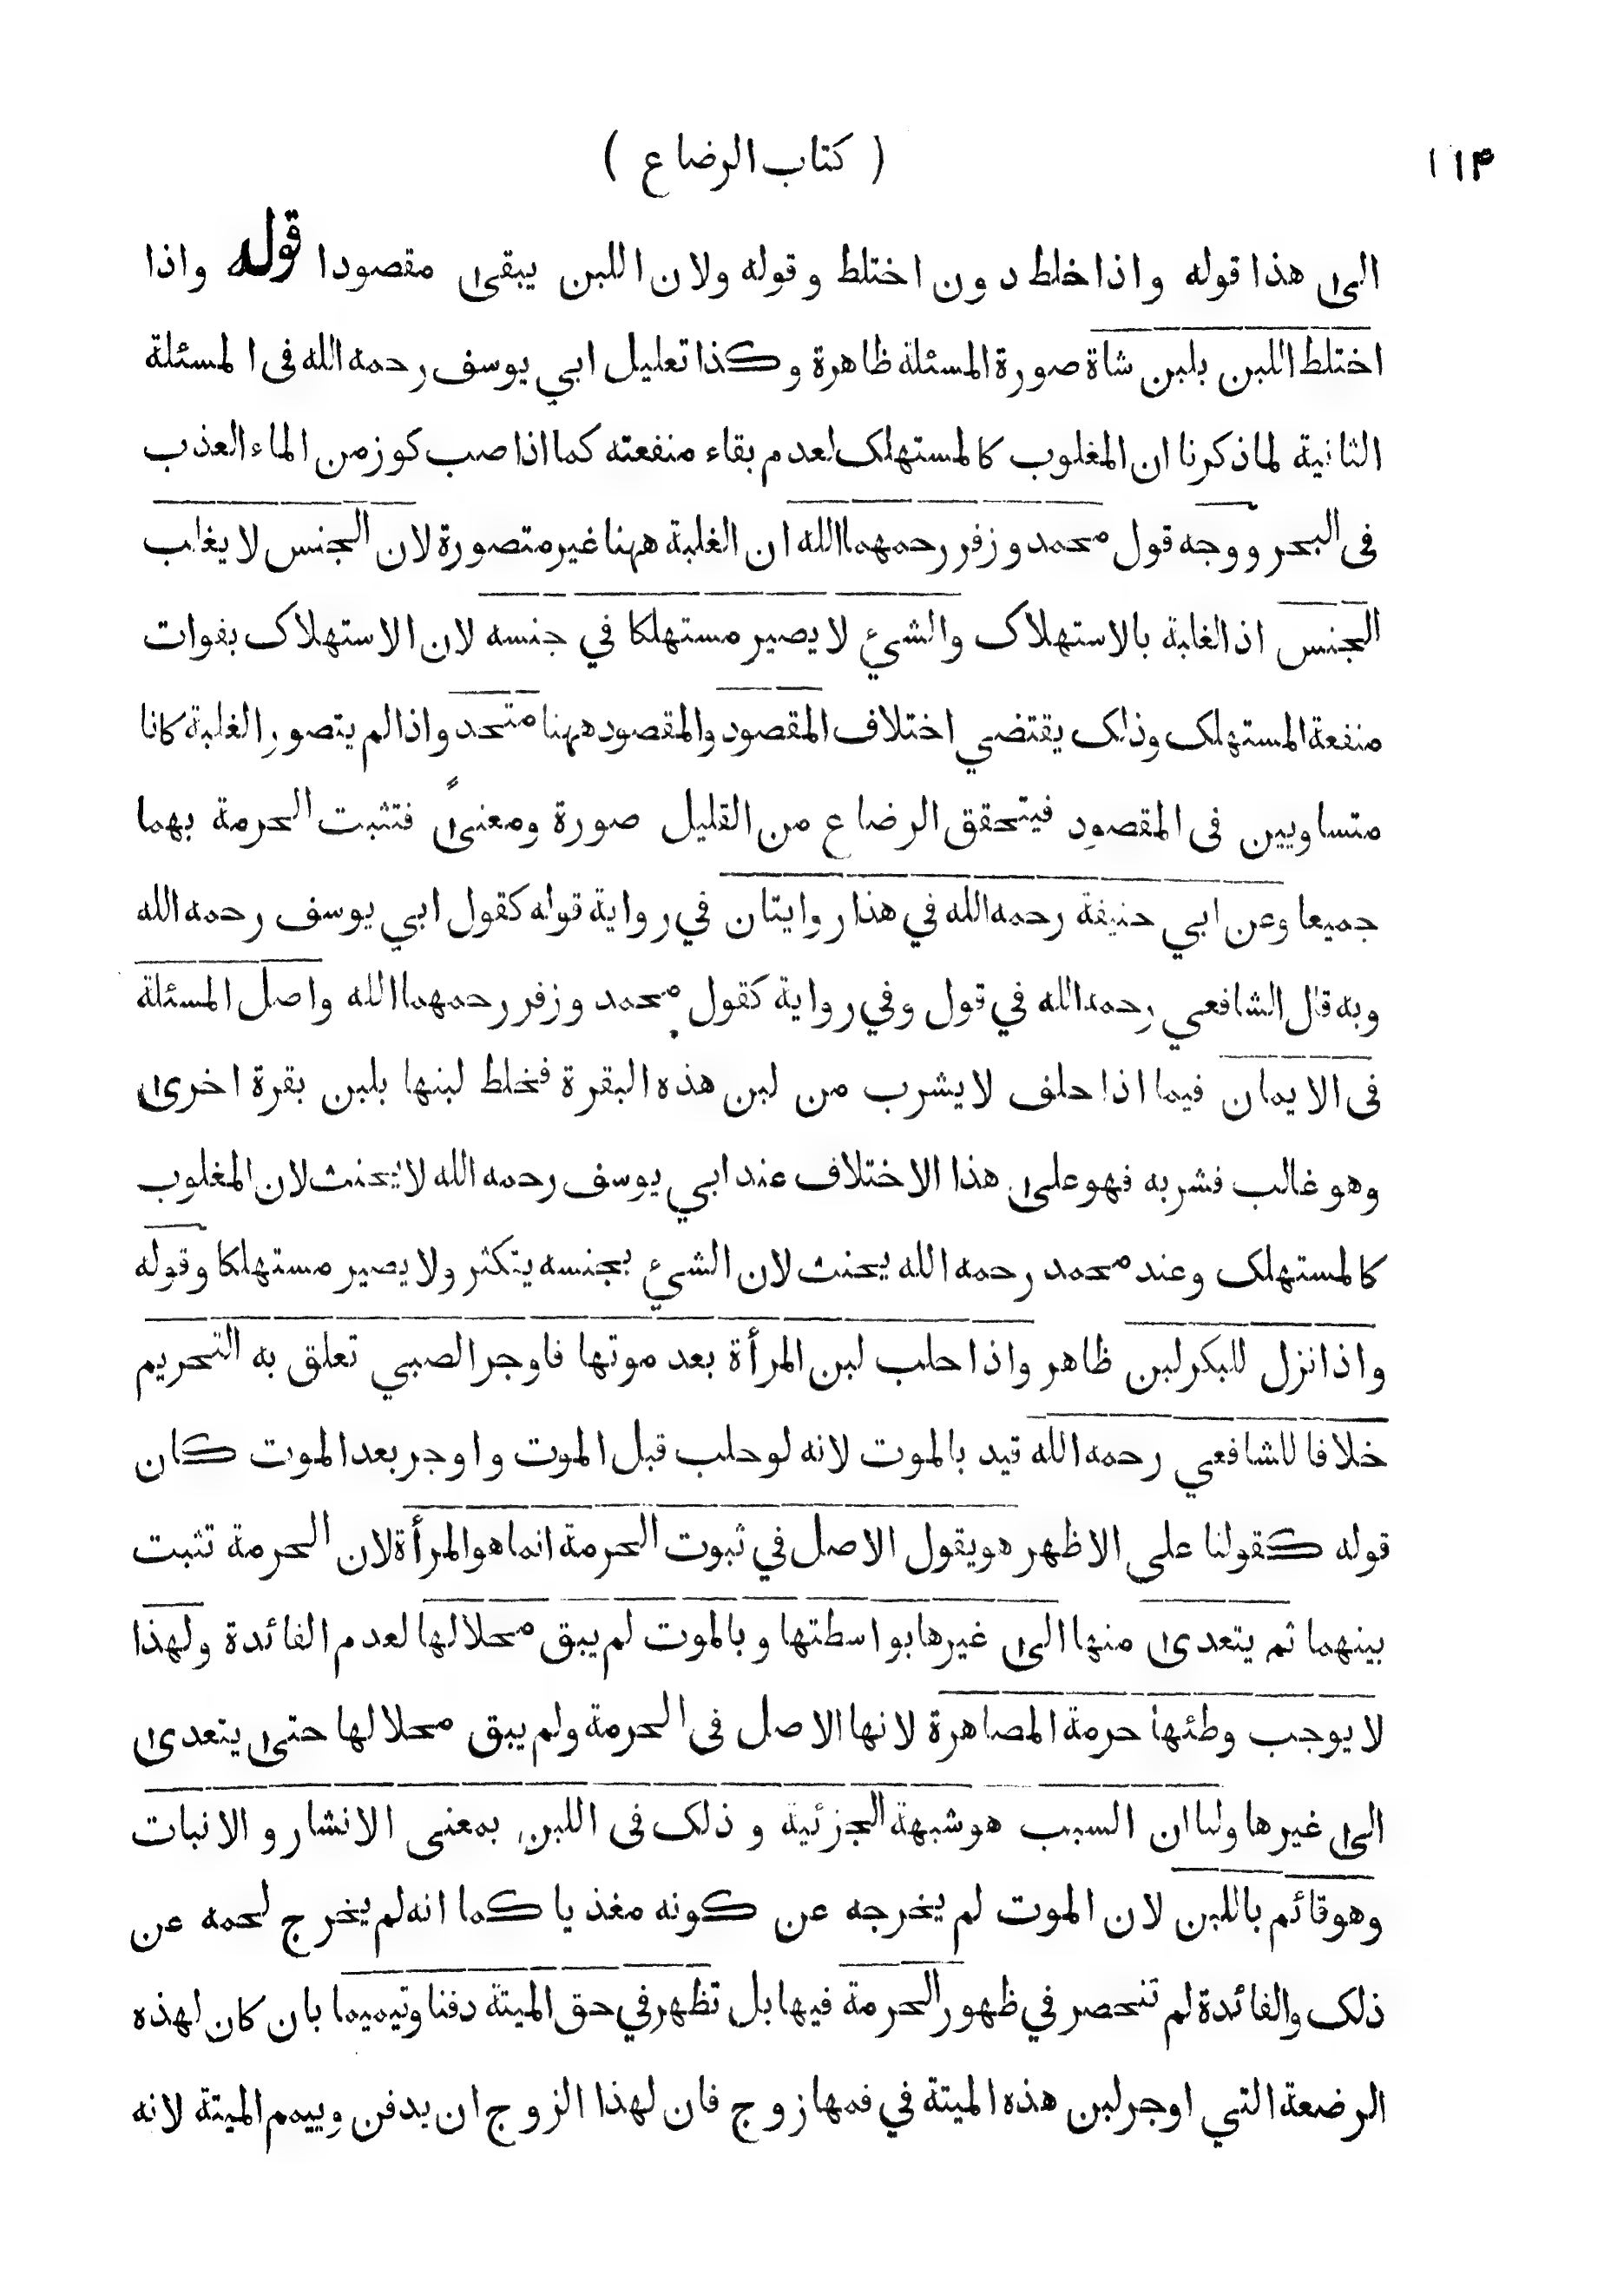 ( كتاب الرضاع ) ١١۴
الى هذا قوله واذا خلط دون اختلط وقوله ولان اللبن يبقى مقصودا قوله واذا
اختلط اللبن بلبن شاة صورة المسئلة ظاهرة وكذا تعليل ابي يوسف رحمه الله فى المسئلة
الثانية لماذكرنا ان المغلوب كالمستهلك لعدم بقاء منفعته كما اذا صب كوز من الماء العذب
فى البحر ووجه قول محمد وزفر رحمهما الله ان الغلبة ههنا غير متصورة لان الجنس لا يغلب
الجنس اذ الغلبة بالاستهلاك والشئ لا يصير مستهلكا في جنسه لان الاستهلاك بفوات
منفعة المستهلك وذلك يقتضي اختلاف المقصود والمقصود ههنا متحد واذا لم يتصور الغلبة كانا
متساويين فى المقصود فيتحقق الرضاع من القليل صورة ومعنىً فتثبت الحرمة بهما
جميعا وعن ابي حنيفة رحمه الله في هذا روايتان في رواية قوله كقول ابي يوسف رحمه الله
وبه قال الشافعي رحمه الله في قول وفي رواية كقول محمد وزفر رحمهما الله واصل المسئلة
فى الايمان فيما اذا حلف لا يشرب من لبن هذه البقرة فخلط لبنها بلبن بقرة اخرى
وهو غالب فشربه فهو على هذا الاختلاف عند ابي يوسف رحمه الله لا يحنث لان المغلوب
كالمستهلك وعند محمد رحمه الله يحنث لان الشئ بجنسه يتكثر ولا يصير مستهلكا وقوله
واذا نزل للبكر لبن ظاهر واذا حلب لبن المرأة بعد موتها فاوجر الصبي تعلق به التحريم
خلافا للشافعي رحمه الله قيد بالموت لانه لو حلب قبل الموت واوجر بعد الموت كان
قوله كقولنا على الاظهر هو يقول الاصل في ثبوت الحرمة انما هو المرأة لان الحرمة تثبت
بينهما ثم يتعدى منها الى غيرها بواسطتها وبالموت لم يبق محلا لها لعدم الفائدة ولهذا
لا يوجب وطئها حرمة المصاهرة لانها الاصل فى الحرمة ولم يبق محلا لها حتى يتعدى
الى غيرها ولنا ان السبب هو شبهة الجزئية وذلك فى اللبن بمعنى الانشار والانبات
وهو قائم باللبن لان الموت لم يخرجه عن كونه مغذيا كما انه لم يخرج لحمه عن
ذلك والفائدة لم تنحصر في ظهور الحرمة فيها بل تظهر في حق الميتة دفنا وتيميما بان كان لهذه
الرضعة التي اوجر لبن هذه الميتة في فمها زوج فان لهذا الزوج ان يدفن وييمم الميتة لانه